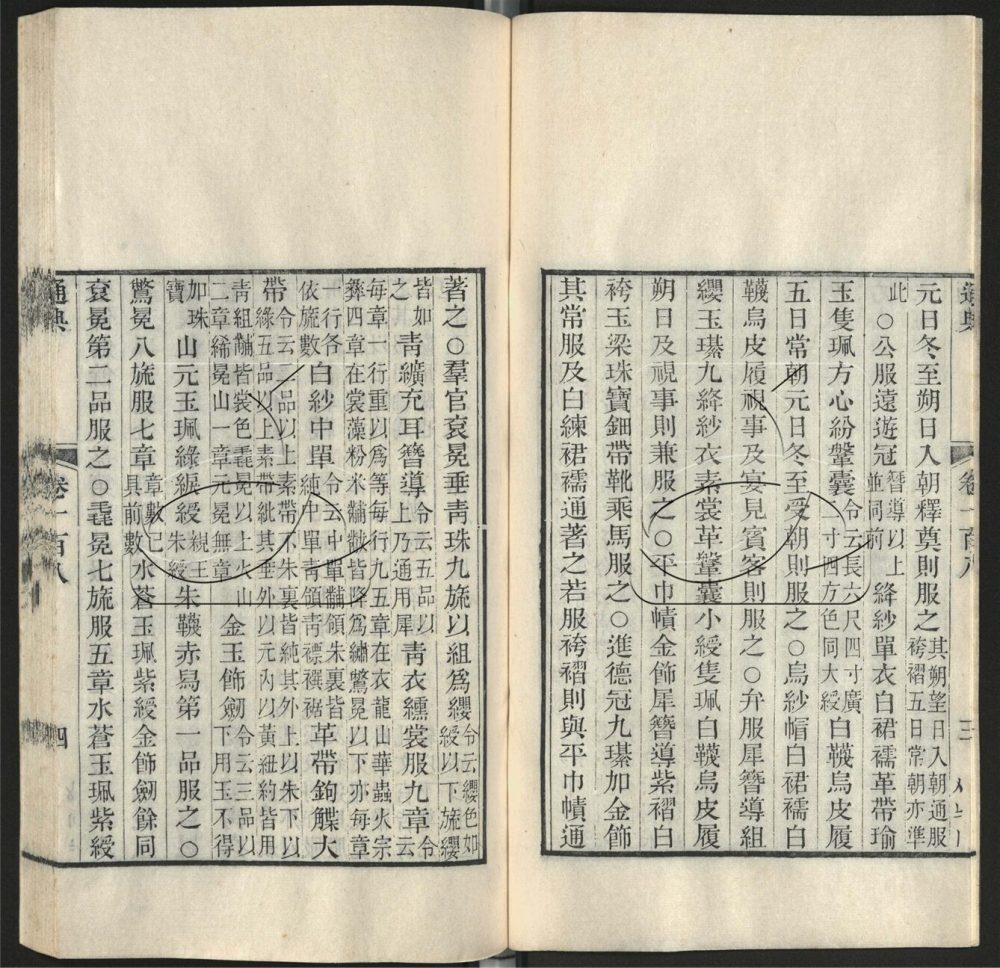 元日冬至朔日入朝釋奠則服之其朔望日入朝通服袴褶五日常朝亦準
此○公服遠遊冠簪導以上並同前絳紗單衣白裙襦革帶瑜
玉隻珮方心紛鞶囊令云長六尺四寸廣二寸四方色同大綬白韈烏皮履
五日常朝元日冬至受朝則服之○烏紗帽白裙襦白
韈烏皮履視事及宴見賓客則服之○弁服犀簪導組
纓玉璂九絳紗衣素裳革鞶囊小綬隻珮白韈烏皮履
朔日及視事則兼服之○平巾幘金飾犀簪導紫褶白
袴玉梁珠寶鈿帶靴乘馬服之○進德冠九璂加金飾
其常服及白練裙襦通著之若服袴褶則與平巾幘通
通典
卷一百八
三
著之○羣官袞冕垂青珠九旒以組爲纓令云纓色如綬以下旒纓
皆如之青纊充耳簪導令云五品以上乃通用犀青衣纁裳服九章令云
每章一行重以爲等每行九五章在衣龍山華蟲火宗
彝四章在裳藻粉米黼黻皆降爲繡鷩冕以下亦每章
一行各依旒數白紗中單令云中單黼領朱裏皆純中單青領青褾襈裾革帶鉤䚢大
帶令云二品以上素帶不朱裏皆純其外上以朱下以綠五品以上素帶紕其垂外以元內以黃紐約皆用
青組黼皆裳色毳冕以上火山二章絺冕山一章元冕無章金玉飾劒令云三品以下用玉不得
加珠寶山元玉珮綠綟綬親王朱綬朱韈赤舄第一品服之○
鷩冕八旒服七章章數已具前數水蒼玉珮紫綬金飾劒餘同
袞冕第二品服之○毳冕七旒服五章水蒼玉珮紫綬
通典
卷一百八
四